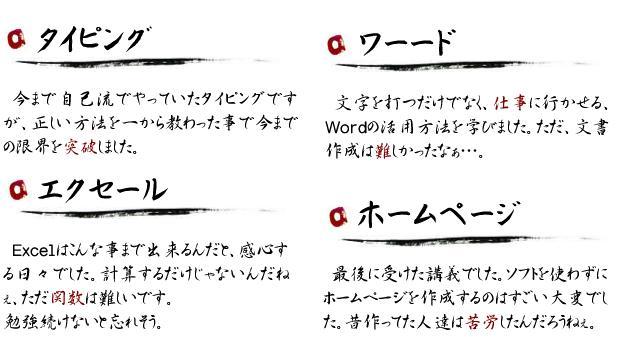 タイピング
今まで自己流でやっていたタイピングです
が、正しい方法を一から教わった事で今まで
の限界を突破しました。
エクセール
Excelはこんな事まで出来るんだと、感心す
る日々でした。計算するだけじゃないんだね
ぇ、ただ関数は難しいです。
勉強続けないと忘れそう。
ワーード
文字を打つだけでなく、仕事に行かせる、
Wordの活用方法を学びました。ただ、文書
作成は難しかったなぁ・・・。
ホームページ
最後に受けた講義でした。ソフトを使わずに
ホームページを作成するのはすごい大変でし
た。昔作ってた人達は苦労したんだろうねぇ。